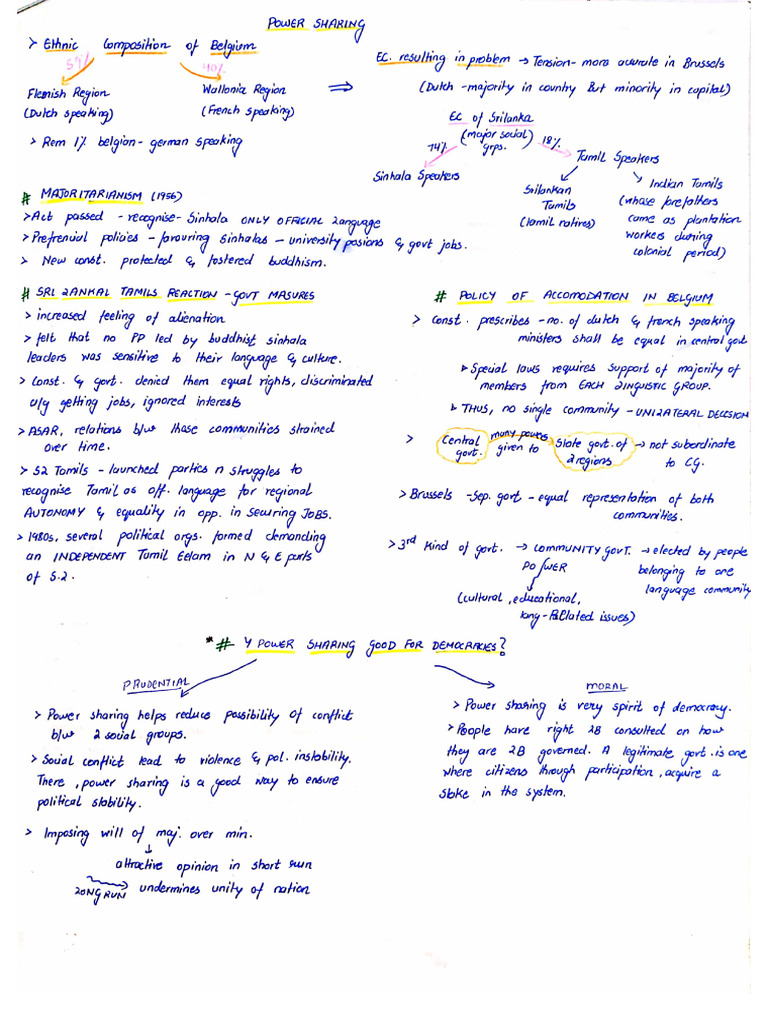 POWER SHARING
> Ethnic Composition of Belgium
59%
40%
Flemish Region
(Dutch speaking)
Wallonia Region
(French speaking)
> Rem 1% belgian - german speaking
⇒
EC. resulting in problem → Tension - more accurate in Brussels
(Dutch - majority in country But minority in capital)
EC of Srilanka
(major social grps.
74%
18%
Sinhala Speakers
Tamil Speakers
Srilankan
Tamils
(tamil natives)
Indian Tamils
(whose forefathers
came as plantation
workers during
colonial period)
# MAJORITARIANISM (1956)
> Act passed - recognise - Sinhala ONLY OFFICIAL language
> Prefrenial policies - favouring sinhalas - university posions & govt jobs.
> New const. protected & fostered buddhism.
# SRI LANKAL TAMILS REACTION - GOVT MASURES
> increased feeling of alienation
> felt that no PP led by buddhist sinhala
leaders was sensitive to their language & culture.
> Const. & govt. denied them equal rights, discriminated
u/g getting jobs, ignored interests
> ASAR, relations b/w those communities strained
over time.
> S2 Tamils - launched parties n struggles to
recognise Tamil as off. language for regional
AUTONOMY & equality in opp. in securing JOBS.
> 1980s, several political orgs. formed demanding
an INDEPENDENT Tamil Eelam in N & E parts
of S.2.
# POLICY OF ACCOMODATION IN BELGIUM
> Const. prescribes - no. of dutch & french speaking
ministers shall be equal in central govt
Special laws requires support of majority of
members from EACH LINGUISTIC GROUP.
THUS, no single community - UNILATERAL DECESION
> Central govt. many powers given to State govt. of 2 regions → not subordinate
to CG.
> Brussels - Sep. govt - equal representation of both
communities.
> 3rd kind of govt. → COMMUNITY GOVT. → elected by people
belonging to one
language community
POWER
(cultural, educational,
lang-Related issues)
*# Y POWER SHARING GOOD FOR DEMOCRACIES?
PRUDENTIAL
> Power sharing helps reduce possibility of conflict
b/w 2 social groups.
> Social conflict lead to violence & pol. instability.
There, power sharing is a good way to ensure
political stability.
> Imposing will of maj. over min.
↓
attractive opinion in short run
LONG RUN undermines unity of nation
MORAL
> Power sharing is very spirit of democracy.
> People have right 2B consulted on how
they are 2B governed. A legitimate govt. is one
where citizens through participation, acquire a
stake in the system.